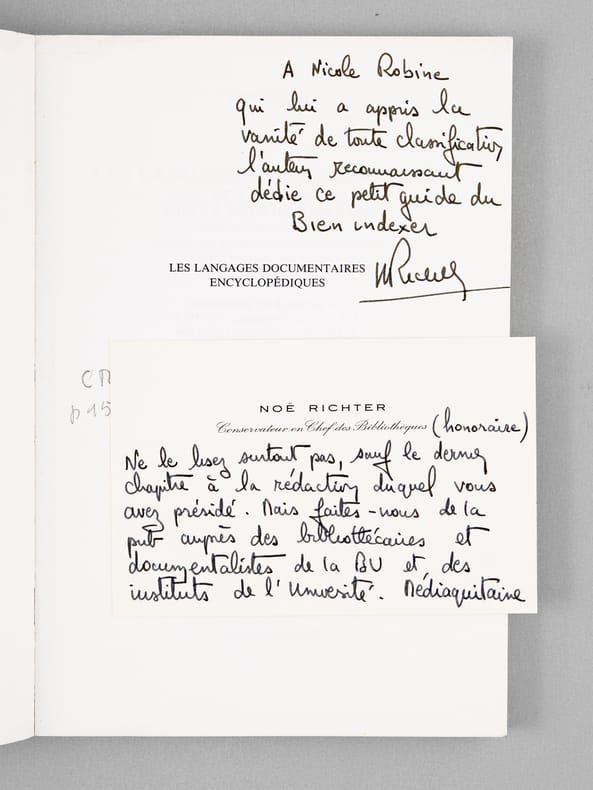 A Nicole Robine
qui lui a appris la
vanité de toute classification
l'auteur reconnaissant
dédie ce petit guide du
Bien indexer
LES LANGAGES DOCUMENTAIRES
ENCYCLOPÉDIQUES
NRichter
p 15
NOË RICHTER
Conservateur en Chef des Bibliothèques (honoraire)
Ne le lisez surtout pas, sauf le dernier
chapitre à la rédaction duquel vous
avez présidé. Mais faites-nous de la
pub auprès des bibliothécaires et
documentalistes de la BU et des
instituts de l'Université. Médiaquitaine